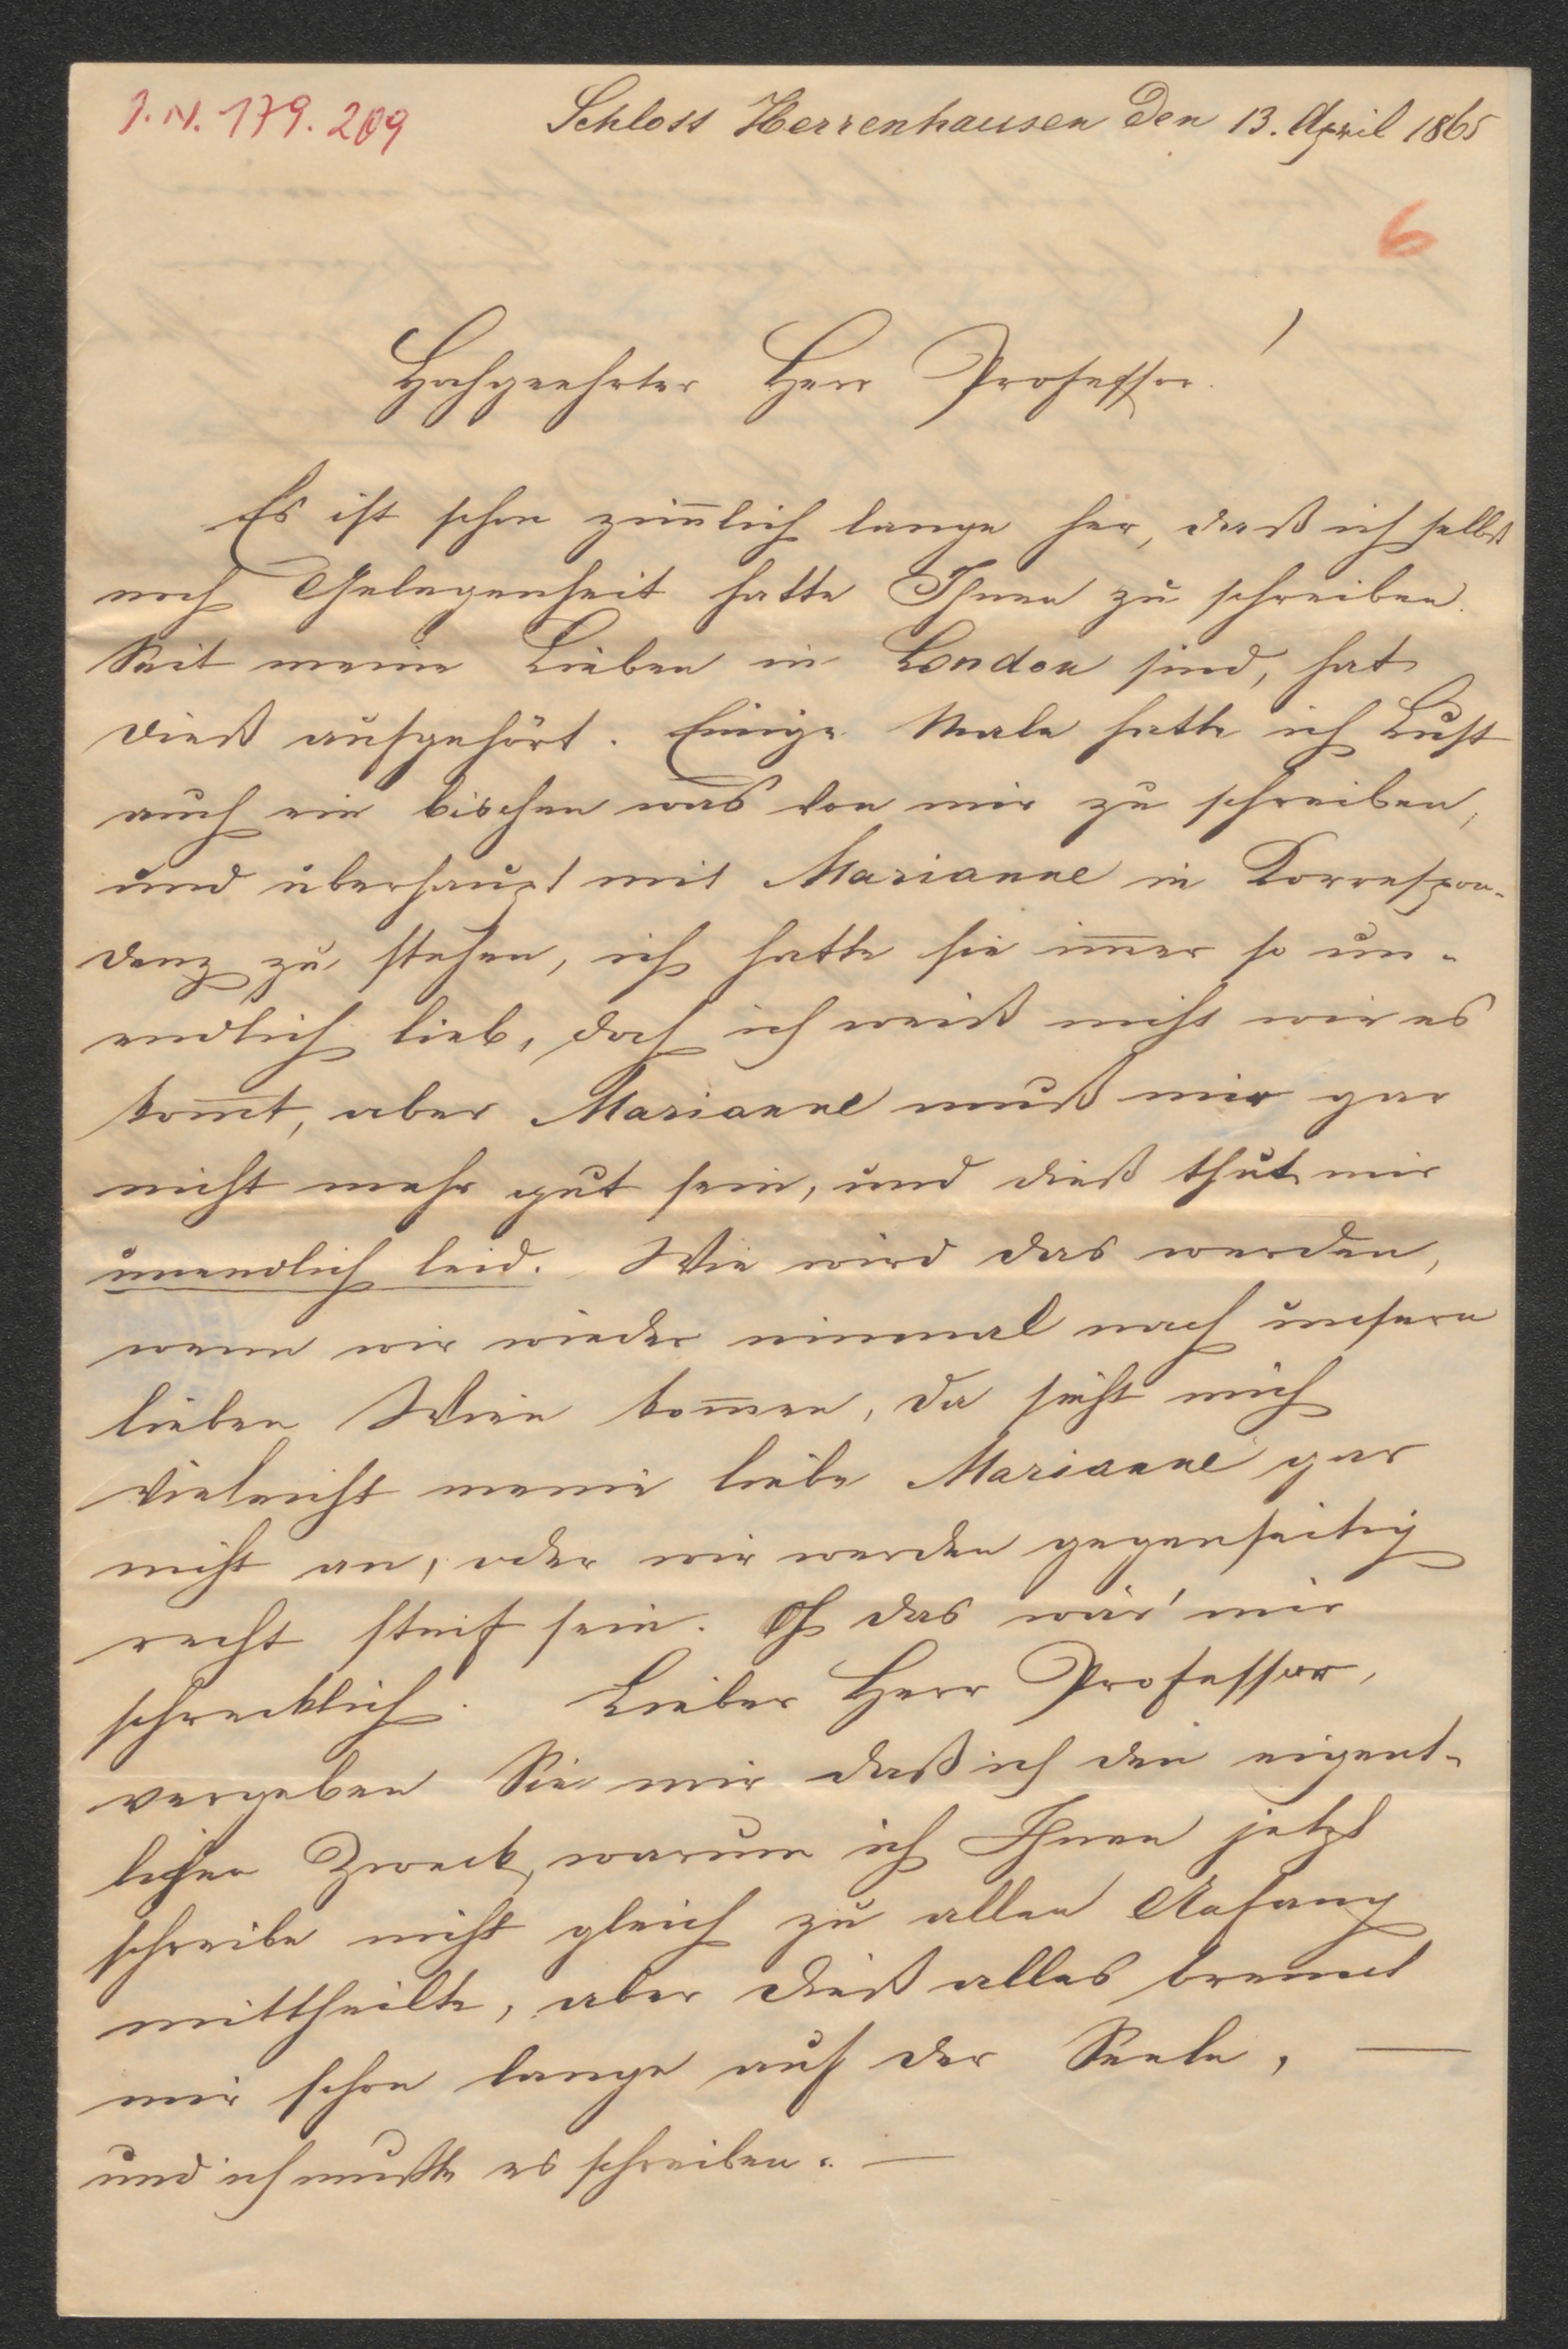 I.N. 179.209
Schloss Herrenhausen den 13. April 1865
6
Hochgeehrter Herr Professor!
Es ist schon zim̄lich lange her, daß ich selbst
noch Gelegenheit hatte Ihnen zu schreiben.
Seit meine Lieben in London sind, hat
dieß aufgehört. Einige Male hatte ich Lust
auch ein bischen was von mir zu schreiben,
und überhaupt mit Marianne in Correspon-
denz zu stehen, ich hatte sie im̄er so un-
endlich lieb, doch ich weiß nicht wie es
kom̄t, aber Marianne muß mir gar
nicht mehr gut sein, und dieß thut mir
unendlich leid. Wie wird das werden,
wenn wir wieder einmal nach unsern
lieben Wien kom̄en, da sieht mich
vieleicht meine liebe Marianne gar
nicht an, oder wir werden gegenseitig
recht steif sein. Oh das wär' mir
schrecklich. Lieber Herr Professor,
vergeben Sie mir daß ich den eigent-
lichen Zweck, warum ich Ihnen jetzt
schreibe nicht gleich zu allen Anfang
mittheilte, aber dieß alles brennt
mir schon lange auf der Seele, —
und ich mußte es schreiben. —